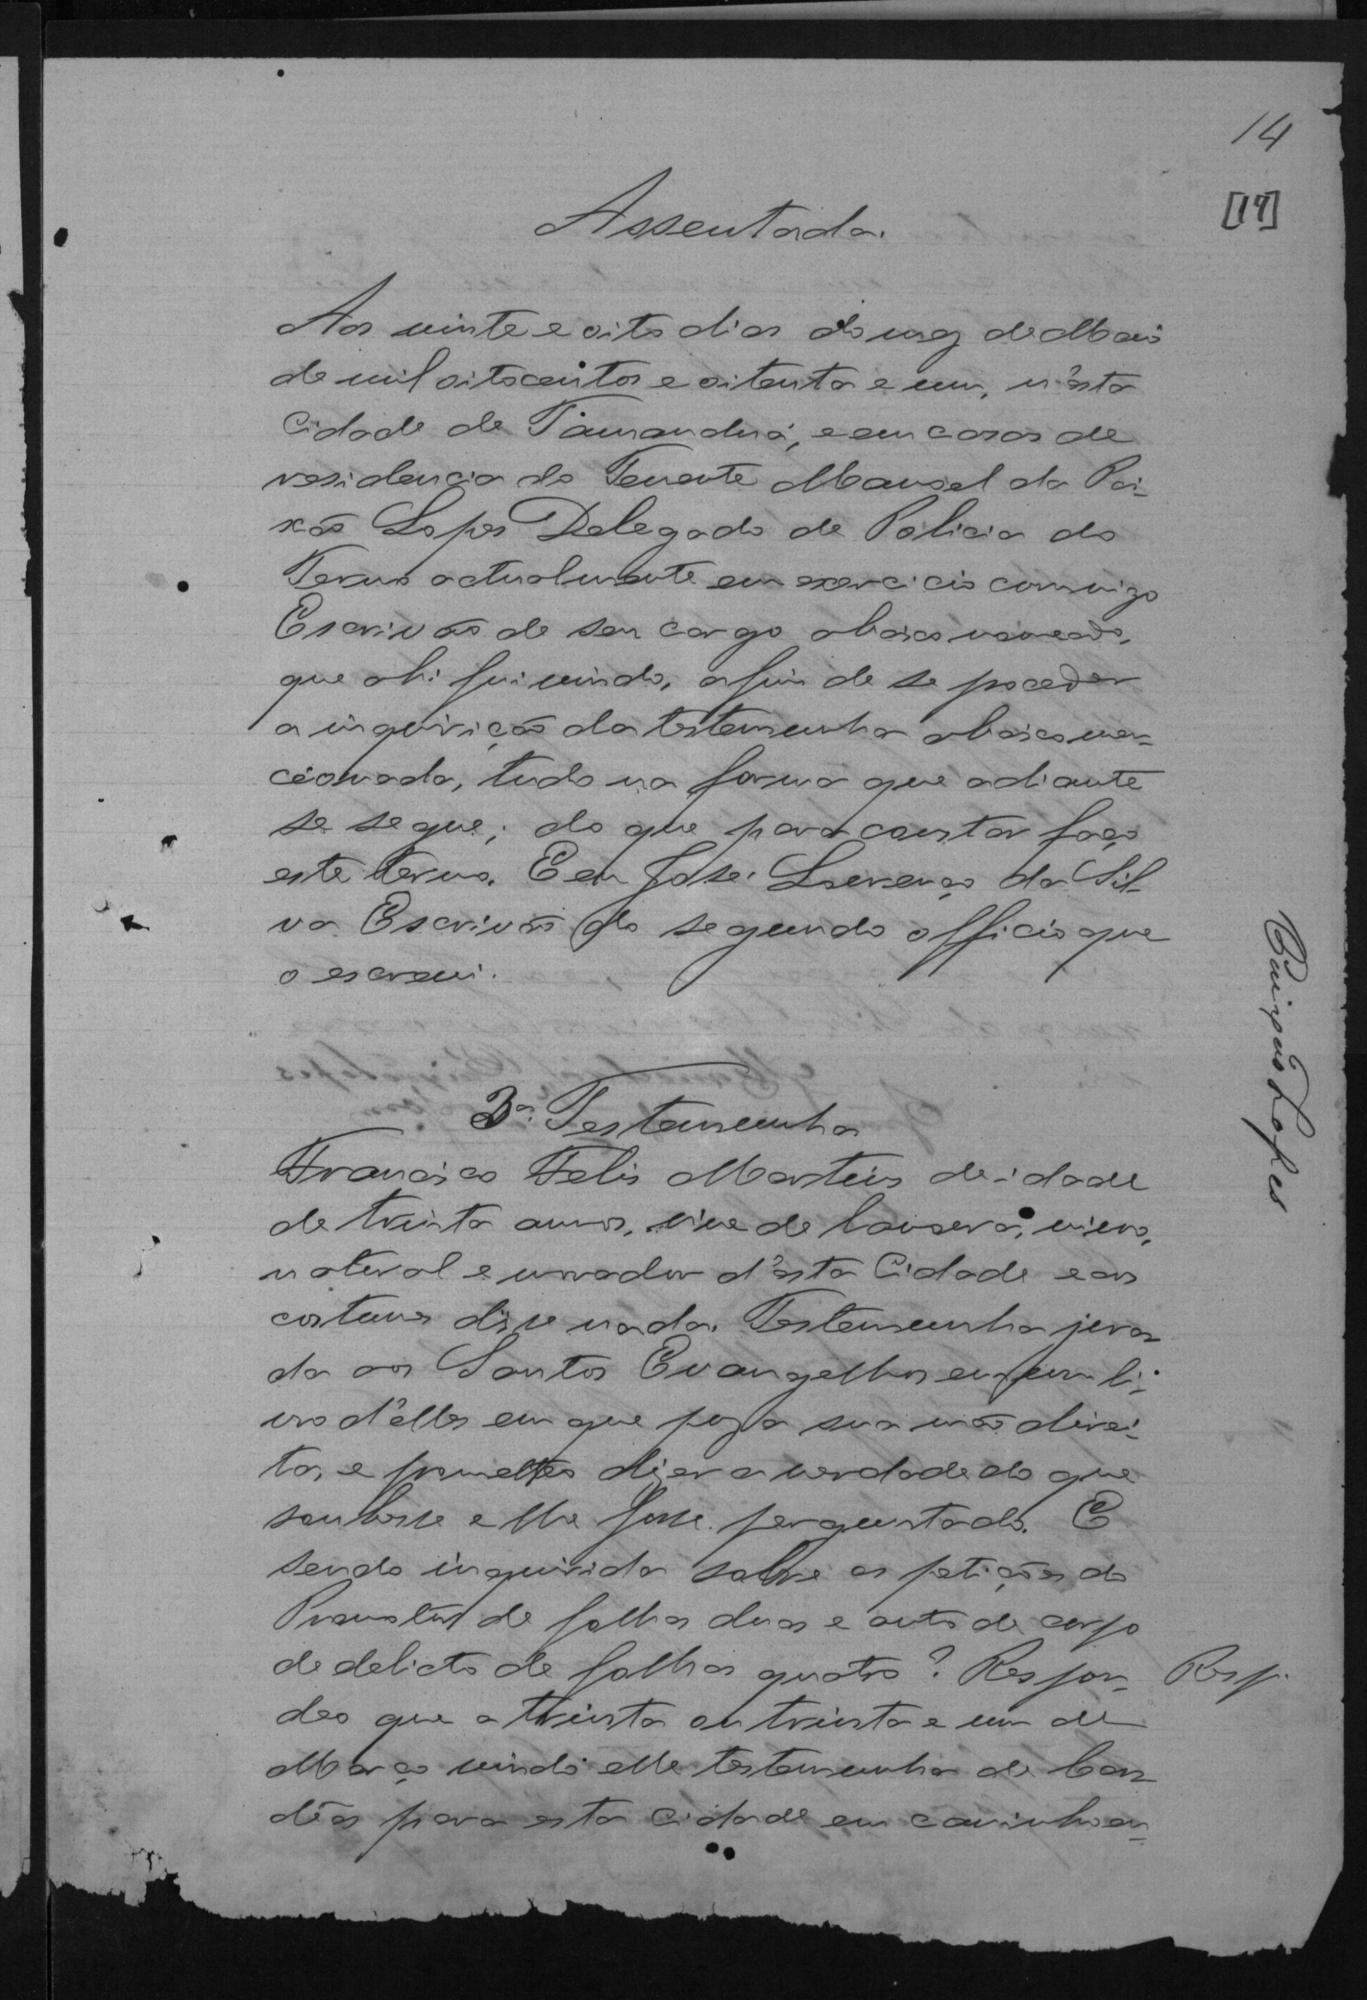 14
[17]
Assentada.
Aos vinte e oito dias do mez de Maio
de mil oitocentos e oitenta e um, n'esta
Cidade de Tamanduá, e em casas de
residencia do Tenente Manoel da Pai-
xão Lopes Delegado de Policia do
Termo actualmente em exercicio commigo
Escrivão de seu cargo abaixo nomeado,
que ahi fui vindo, afim de se proceder
a inquirição da testemunha abaixo men-
cionada, tudo na forma que adiante
se segue; do que para constar faço
este termo. E eu José Lourenço da Sil-
va Escrivão do segundo officio que
o escrevi.
Paixão Lopes
3ª Testemunha
Francisco Felis Martins de idade
de trinta annos, vive de lavoura,
natural e morador d'esta Cidade e aos
costumes disse nada. Testemunha jura-
da aos Santos Evangelhos em um li-
vro d'elles em que poz a sua mão direi-
ta, e prometteo dizer a verdade do que
soubesse e lhe fosse perguntado. E
sendo inquirida sobre as petições do
Promotor de folhas duas e auto de corpo
de delicto de folhas quatro? Respon-
Resp.
deo que a trinta ou trinta e um de
Março vindo elle testemunha de Can-
deas para esta cidade em caminho en-